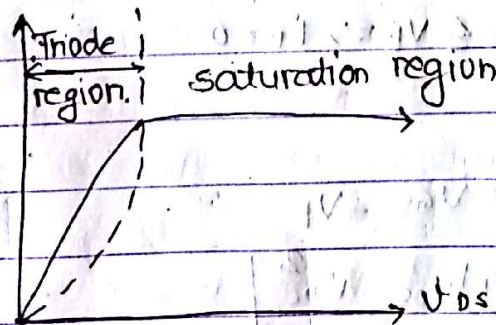 Triode
region.
saturation region
VDS